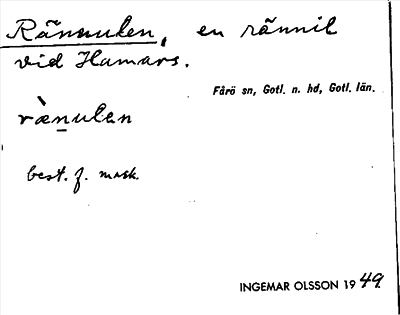 Rännulen, en rännil
vid Hamars.
Fårö sn, Gotl. n. hd, Gotl. län.
rὰnulen
best. f. mask.
INGEMAR OLSSON 1949